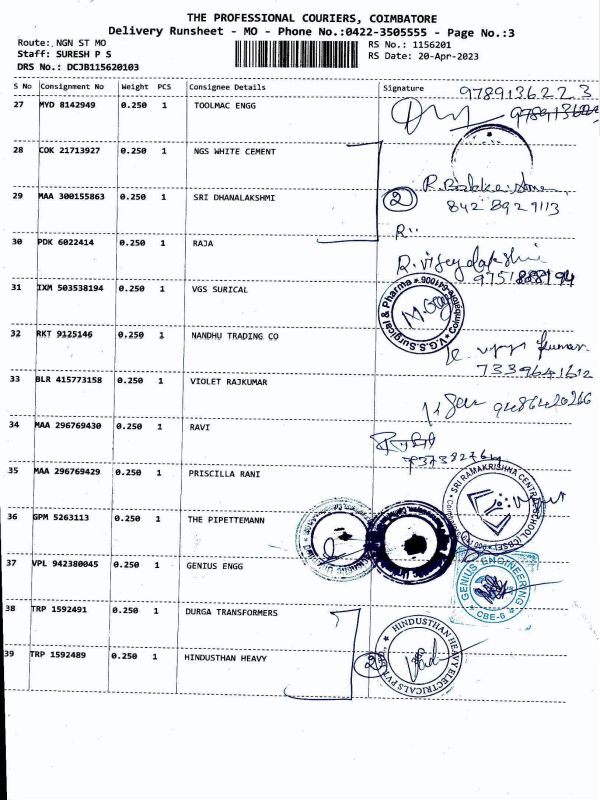 THE PROFESSIONAL COURIERS, COIMBATORE
Delivery Runsheet - MO - Phone No.:0422-3505555 - Page No.:3
Route:, NGN ST MO
RS No.: 1156201
Staff: SURESH P S
RS Date: 20-Apr-2023
DRS No.: DCJB115620103
S No Consignment No Weight PCS Consignee Details Signature
9789136223
27 MYD 8142949 0.250 1 TOOLMAC ENGG
28 COK 21713927 0.250 1 NGS WHITE CEMENT
29 MAA 300155863 0.250 1 SRI DHANALAKSHMI
2
8428929113
30 PDK 6022414 0.250 1 RAJA
R. vijayalakshmi
31 IXM 503538194 0.250 1 VGS SURICAL
V.G.S. Surgical & Pharma
Coimbatore-641006
32 RKT 9125146 0.250 1 NANDHU TRADING CO
7339641612
33 BLR 415773158 0.250 1 VIOLET RAJKUMAR
9486420266
34 MAA 296769430 0.250 1 RAVI
35 MAA 296769429 0.250 1 PRISCILLA RANI
SRI RAMAKRISHNA CENTRAL SCHOOL (CBSE)
36 GPM 5263113 0.250 1 THE PIPETTEMANN
37 VPL 942380045 0.250 1 GENIUS ENGG
GENIUS ENGINEERING
CBE-6
38 TRP 1592491 0.250 1 DURGA TRANSFORMERS
39 TRP 1592489 0.250 1 HINDUSTHAN HEAVY
2
HINDUSTHAN HEAVY ELECTRICALS PVT